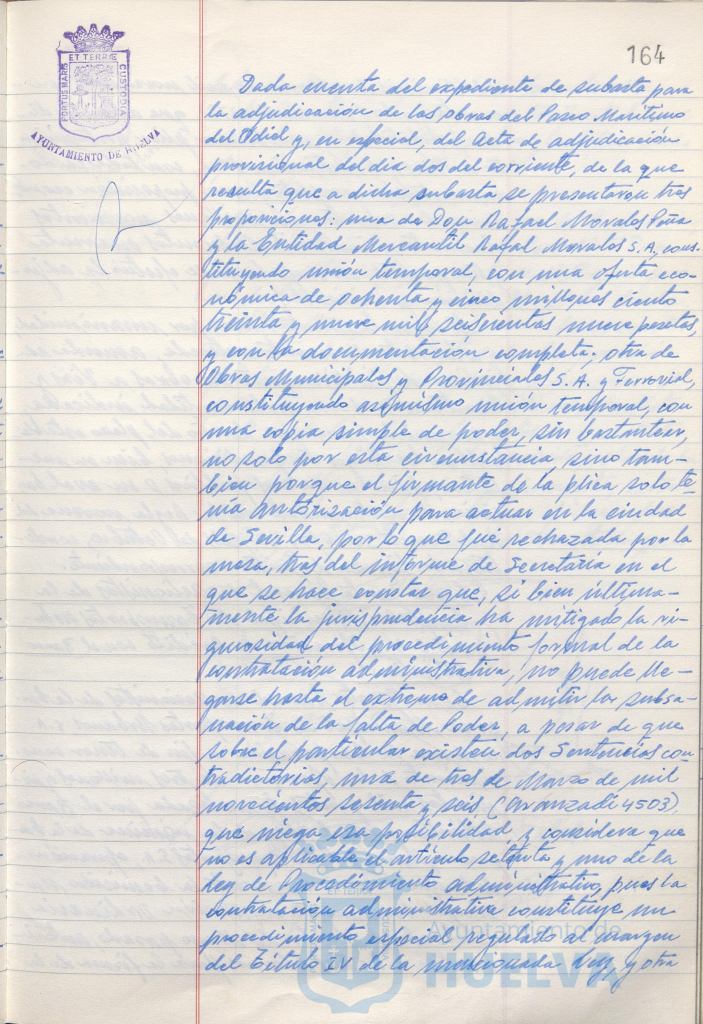 164
PORTUS MARIS ET TERRE CUSTODIA
AYUNTAMIENTO DE HUELVA
Dada cuenta del expediente de subasta para
la adjudicación de las obras del Paseo Marítimo
del Odiel y, en especial, del Acta de adjudicación
provisional del dia dos del corriente, de la que
resulta que a dicha subasta se presentaron tres
proposiciones: una de Don Rafael Morales Peña
y la Entidad Mercantil Rafael Morales S.A, cons-
tituyendo unión temporal, con una oferta eco-
nómica de ochenta y cinco millones ciento
treinta y nueve mil seiscientas nueve pesetas,
y con la documentación completa; otra de
Obras Municipales y Provinciales S.A. y Ferrovial,
constituyendo asimismo unión temporal, con
una copia simple de poder, sin bastantear,
no solo por esta circunstancia, sino tam-
bien porque el firmante de la plica solo te-
nía autorización para actuar en la ciudad
de Sevilla, por lo que fué rechazada por la
mesa, tras del informe de Secretaría en el
que se hace constar que, si bien última-
mente la jurisprudencia ha mitigado la ri-
gurosidad del procedimiento formal de la
contratación administrativa, no puede lle-
garse hasta el extremo de admitir la subsa-
nación de la falta de Poder, a pesar de que
sobre el particular existen dos Sentencias con-
tradictorias, una de tres de Marzo de mil
novecientos sesenta y seis (Aranzadi 4503),
que niega esa posibilidad y considera que
no es aplicable el artículo setenta y uno de la
Ley de Procedimiento administrativo, pues la
contratación administrativa constituye un
procedimiento especial regulado al margen
del Título IV de la mencionada Ley, y otra
Ayuntamiento de
HUELVA